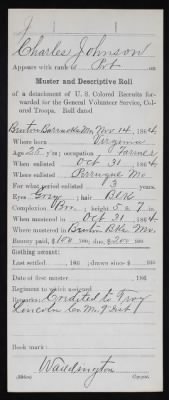 J
Charles Johnson
Appears with rank of Pvt on
Muster and Descriptive Roll
of a detachment of U. S. Colored Recruits for-
warded for the General Volunteer Service, Col-
ored Troops. Roll dated
Benton Barracks Mo, Nov 14, 1864.
Where born Virginia
Age 25 y'rs; occupation Farmer
When enlisted Oct 31, 1864.
Where enlisted
For what period enlisted 3 years.
Eyes Grey; hair Blk
Complexion Brn; height 5 ft. 7 in.
When mustered in Oct 31, 1864.
Where mustered in Benton Bks Mo.
Bounty paid, $100; due, $200
Clothing account:
Last settled, , 186 ; drawn since $ 100
Date of first muster , 186 .
Regiment to which assigned
Remarks: Credited to Troy
Lincoln Co Mo 9 Dist
Book mark:
Waddington
Copyist.